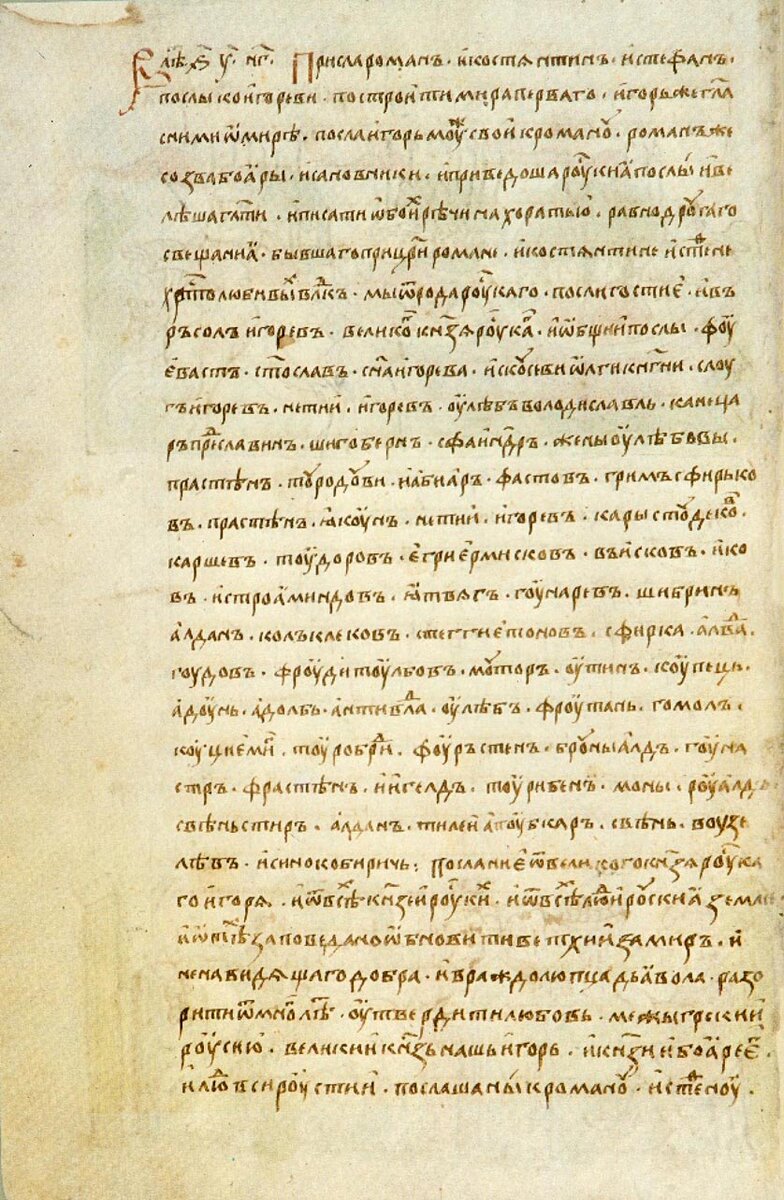 В лѣ҃. ҂ѕ҃. у҃. н҃г. Присла романъ · и҆ костѧнтинъ · и҆ стефанъ ·
послы ко и҆гореви · построити мира перваго · и҆горь же гл҃а
с ними ѿ мирѣ · посла и҆горь моуж свой к романоу · романъ же
созва боѧры · и҆ сановники · и҆ приведоша роускиѧ послы и҆ ве
лѣша гл҃ати · и҆ писати ѡбоих рѣчи на хоратью · равно дроугаго
свещаниѧ · бывшаго при цр҃и романе · и҆ костѧнтине и҆ стефане
хрⷭ҇толюбивых влⷣкъ · мы ѿ рода роускаго · посли и гостиє · и҆въ
ръ солъ и҆горевъ · великого кнѧзѧ роускаг · и҆ ѡбщии послы · фоу
є҆вастъ · ст҃ославъ · сн҃а и҆горева · и҆скоусеви ѡлги кнⷽгни · слоу
гъ и҆горевъ · нетий · и҆горевъ · оулѣбъ володиславль · канеца
ръ преⷣславинъ · шигобернъ · сфанⷣдръ · жены оулѣбовы ·
прастѣнъ · тоуродоуви · либиаръ · фастовъ · гримъ сфирько
въ · прастѣнъ · ꙗкоунъ · нетий · и҆горевъ · кары стоудековъ ·
каршевъ · тоудоровъ · є҆гриє҆рлисковъ · въисковъ · и҆ко
въ · и҆строаминдовъ · ꙗтвѧгъ · гоунаревъ · шибринъ
алданъ · колъклековъ · стеггиє҆тоновъ · сфирка · алвад
гоудовъ · фроуди тоулбовъ · моуторъ · оутинъ · коупець ·
адоунь · адолбъ · антивлад · оулѣбъ · фроутань · гомолъ ·
коуциємиг · тоуробрид · фоурьстенъ · броуныалдъ · гоуна
стръ · фрастѣнъ · и҆игелдъ · тоурибенъ · моны · роуалдъ
свѣньстиръ · алданъ · тилей апоубкаръ · свѣнь · воузе
лѣвъ · и҆ синокобиричь : посланиє ѿ великого кнѧзѧ роуска
го и҆горѧ · и҆ ѿ всеѣ кнѧжеи роуския · и҆ ѿ всѣх людии роускиꙗ земли
и҆ ѿ тѣх заповедано ѡбновити ветхий замиръ · и҆
ненавидѧщаго добра · и҆ враждолюпца дьꙗвола · разо
рити ѿ многъ лѣтъ · оутвердити любовь · межы греки и҆
роусию · великий кнѧзь нашь и҆горь · и҆ кнѧзи и҆ боѧре є҆г
и҆ людьє вси роустии · послаша ны к романоу · и҆ стефаноу ·